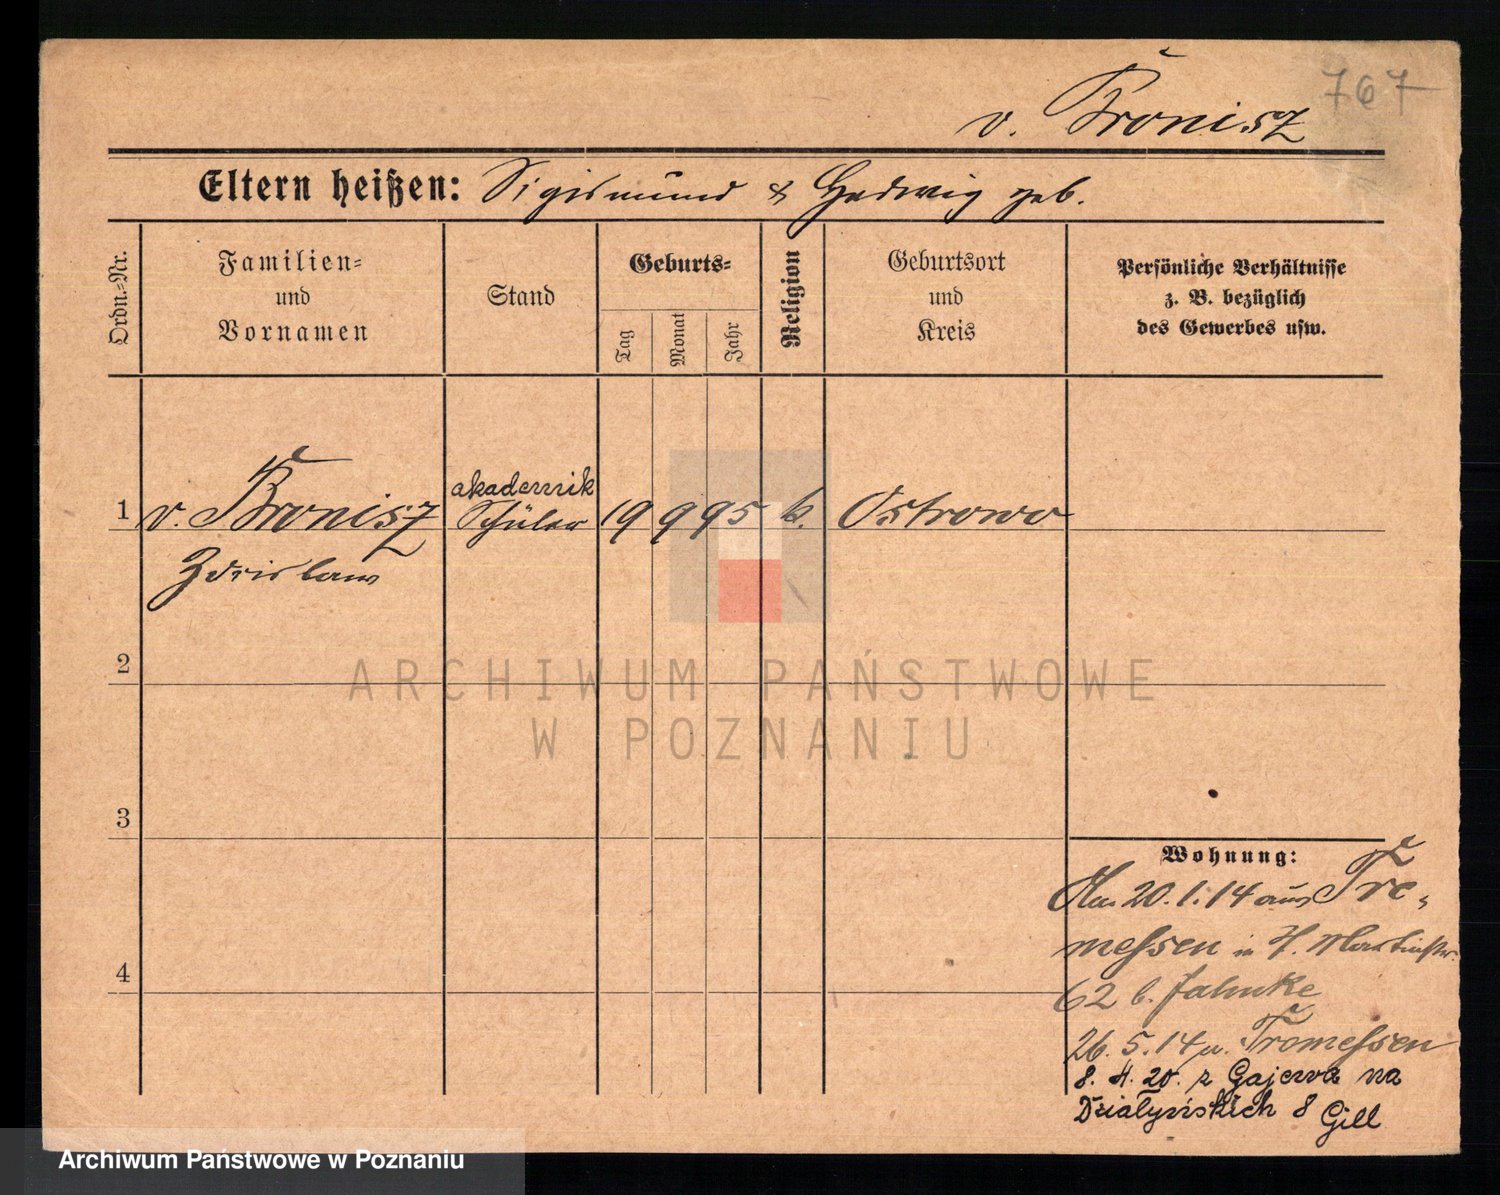 767
v. Bronisz
Eltern heißen: Sigismund & Hedwig geb.
Ordn.-Nr.
Familien- und Vornamen
Stand
Geburts-
Tag
Monat
Jahr
Religion
Geburtsort und Kreis
Persönliche Verhältnisse
z. B. bezüglich
des Gewerbes usw.
akademik
1 v. Bronisz Schüler 19 9 95 k. Ostrowo
Zdzislaw
2
ARCHIWUM PAŃSTWOWE
W POZNANIU
3
Wohnung:
20.1.14 aus Tre-
messen in H. Martinstr.
62 b. Jahnke
4
26.5.14 n. Tremessen
8. 4. 20. z Gajewa na
Działyńskich 8 Gill
Archiwum Państwowe w Poznaniu